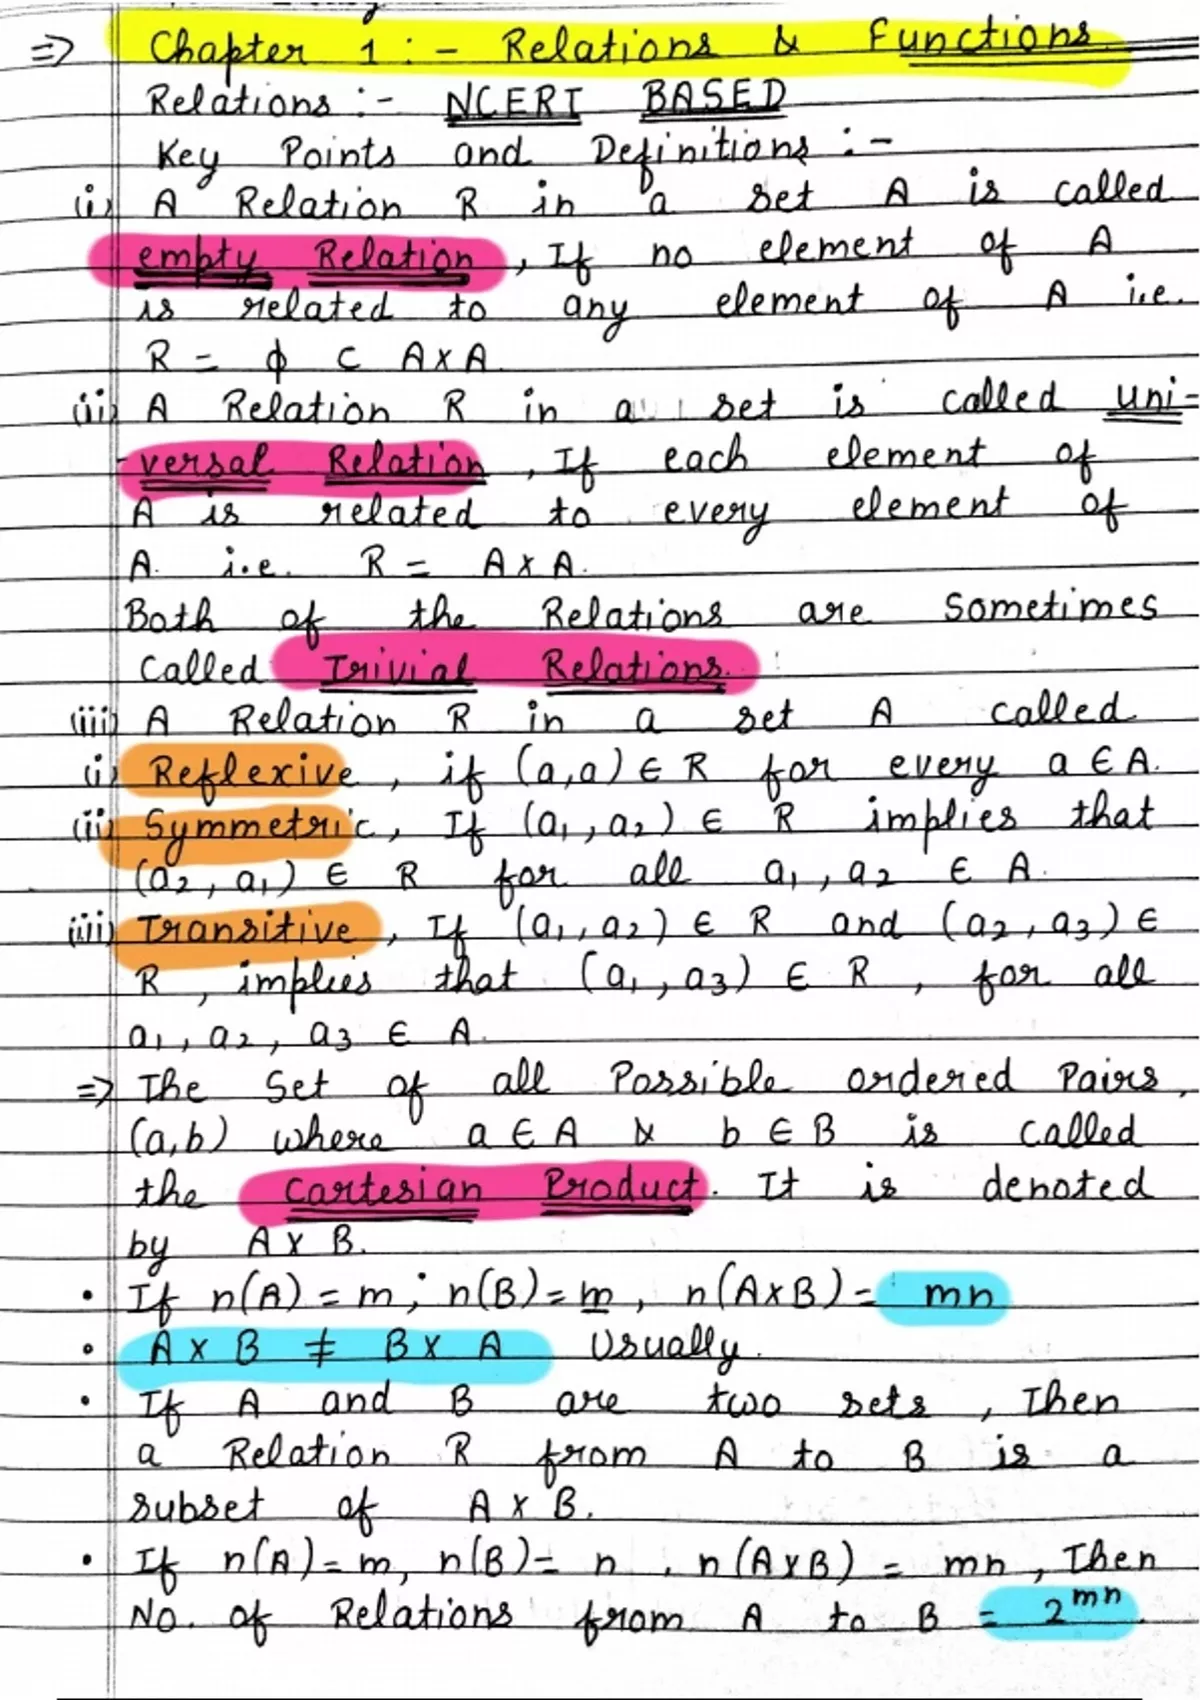 => Chapter 1 :- Relations & Functions
Relations :- NCERT BASED
Key Points and Definitions :-
(i) A Relation R in a set A is called
empty Relation, If no element of A
is related to any element of A i.e.
R = ϕ ⊂ A×A
(ii) A Relation R in a set is called uni-
-versal Relation, If each element of
A is related to every element of
A. i.e. R = A×A.
Both of the Relations are Sometimes
Called Trivial Relations.
(iii) A Relation R in a set A called
(i) Reflexive, if (a,a) ∈ R for every a ∈ A.
(ii) Symmetric, If (a₁, a₂) ∈ R implies that
(a₂, a₁) ∈ R for all a₁, a₂ ∈ A.
(iii) Transitive, If (a₁, a₂) ∈ R and (a₂, a₃) ∈
R, implies that (a₁, a₃) ∈ R, for all
a₁, a₂, a₃ ∈ A.
=> The Set of all Possible ordered Pairs,
(a,b) where a ∈ A & b ∈ B is called
the Cartesian Product. It is denoted
by A × B.
• If n(A) = m; n(B) = m, n(A×B) = mn
• A × B ≠ B × A Usually.
• If A and B are two sets, Then
a Relation R from A to B is a
subset of A × B.
• If n(A) = m, n(B) = n, n(A×B) = mn, Then
No. of Relations from A to B = 2ᵐⁿ.